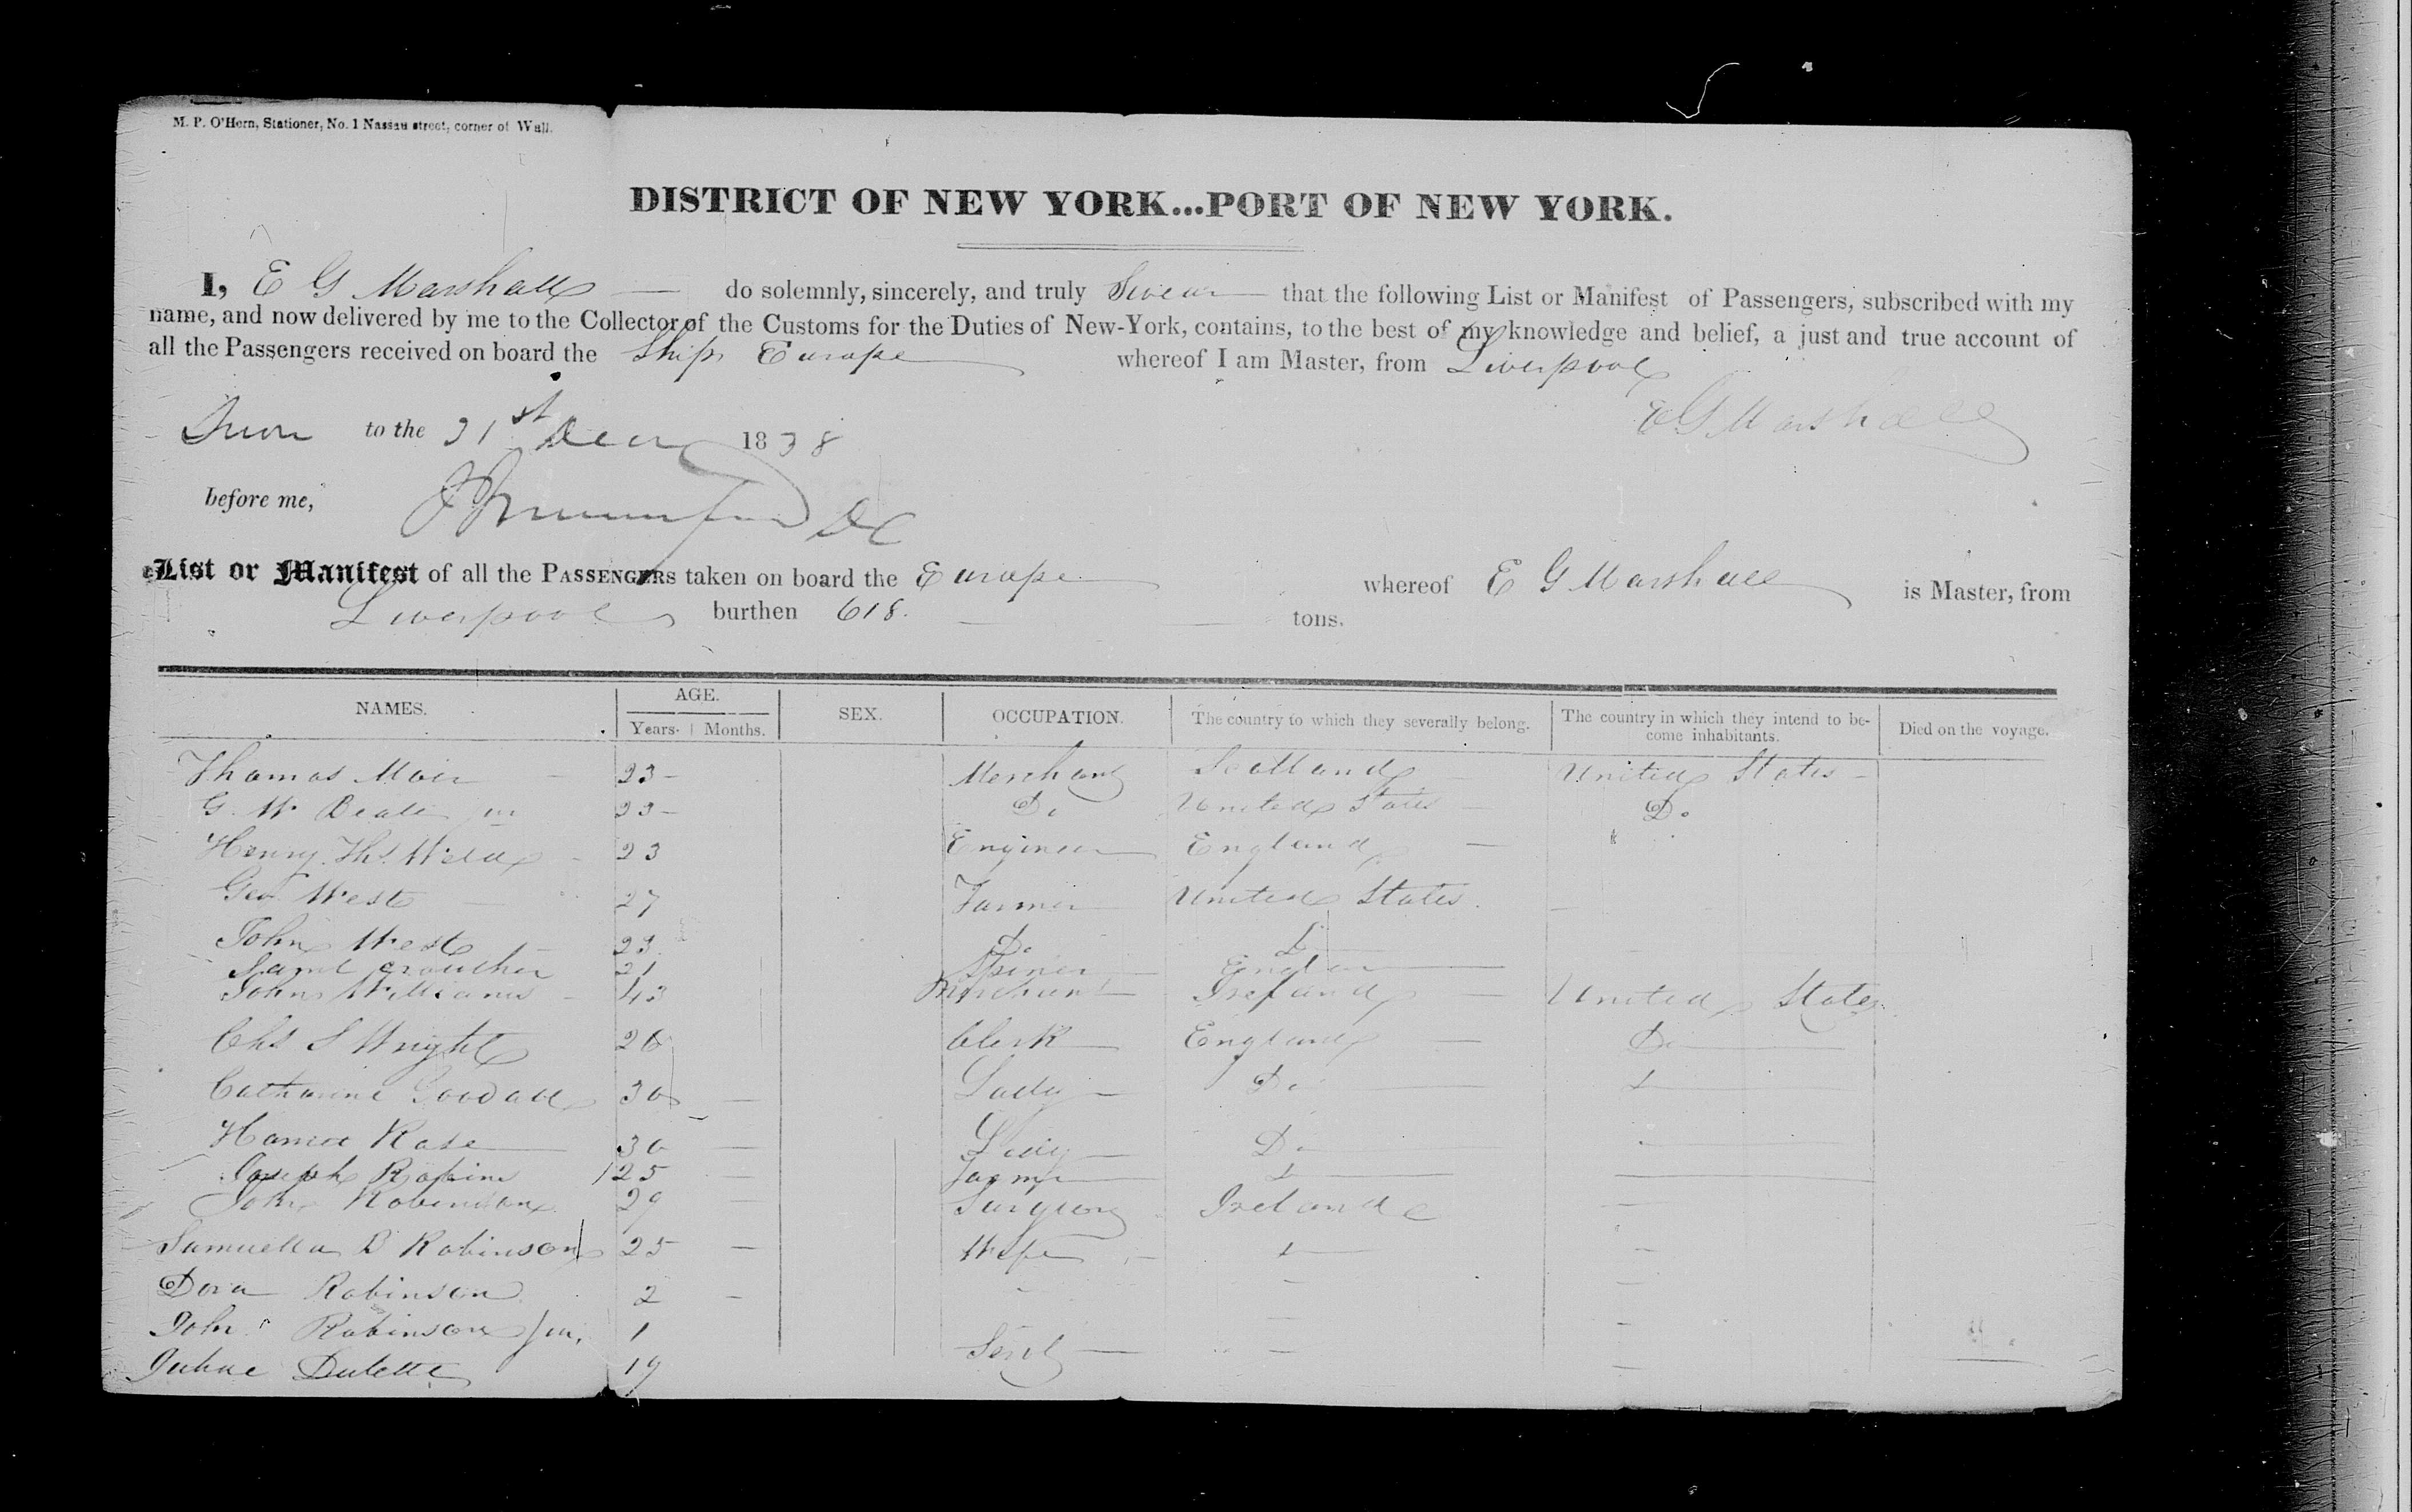 M. P. O'Hern, Stationer, No. 1 Nassau street, corner of Wall.
DISTRICT OF NEW YORK...PORT OF NEW YORK.
I, E G Marshall do solemnly, sincerely, and truly Swear that the following List or Manifest of Passengers, subscribed with my
name, and now delivered by me to the Collector of the Customs for the Duties of New-York, contains, to the best of my knowledge and belief, a just and true account of
all the Passengers received on board the Ship Europe whereof I am Master, from Liverpool
E G Marshall
to the 31st 1838
before me,
List or Manifest of all the PASSENGERS taken on board the Europe whereof E G Marshall is Master, from
Liverpool burthen 618. tons.
NAMES. AGE. SEX. OCCUPATION. The country to which they severally belong. The country in which they intend to be- Died on the voyage.
Years. Months. come inhabitants.
Thomas Moir 23 Merchant Scotland United States
G. W. 23 Do United States Do
Henry Ths. Weld 23 Engineer England
Geo West 27 Farmer United States.
John West 23 Do
Saml Crowther 21 Spiner England
John Williams 43 Merchant Ireland United States
Chs S Wright 26 Clerk England Do
Catharine Goodall 30 Lady Do
Harriet 30 Lady Do
Joseph 25 Farmer
John Robinson 29 Surgeon Ireland
Samuella B Robinson 25 Wife
Dora Robinson 2
John Robinson Jun. 1
19 Servt